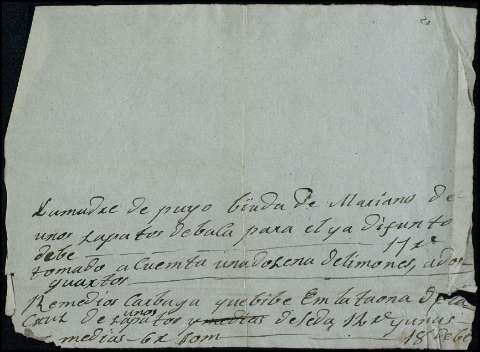 Lamadre de puyo biuda de Mariano de
unos zapatos debaca para el ya difunto
debe 17 r.s
tomado a Cuenta unadosena delimones, ados
quartos
Remedios Carbaya quebibe En la taona de la
Cruz de unos zapatos y medias deseda 12 r.s y unas
medias 6 r. son 18 debe